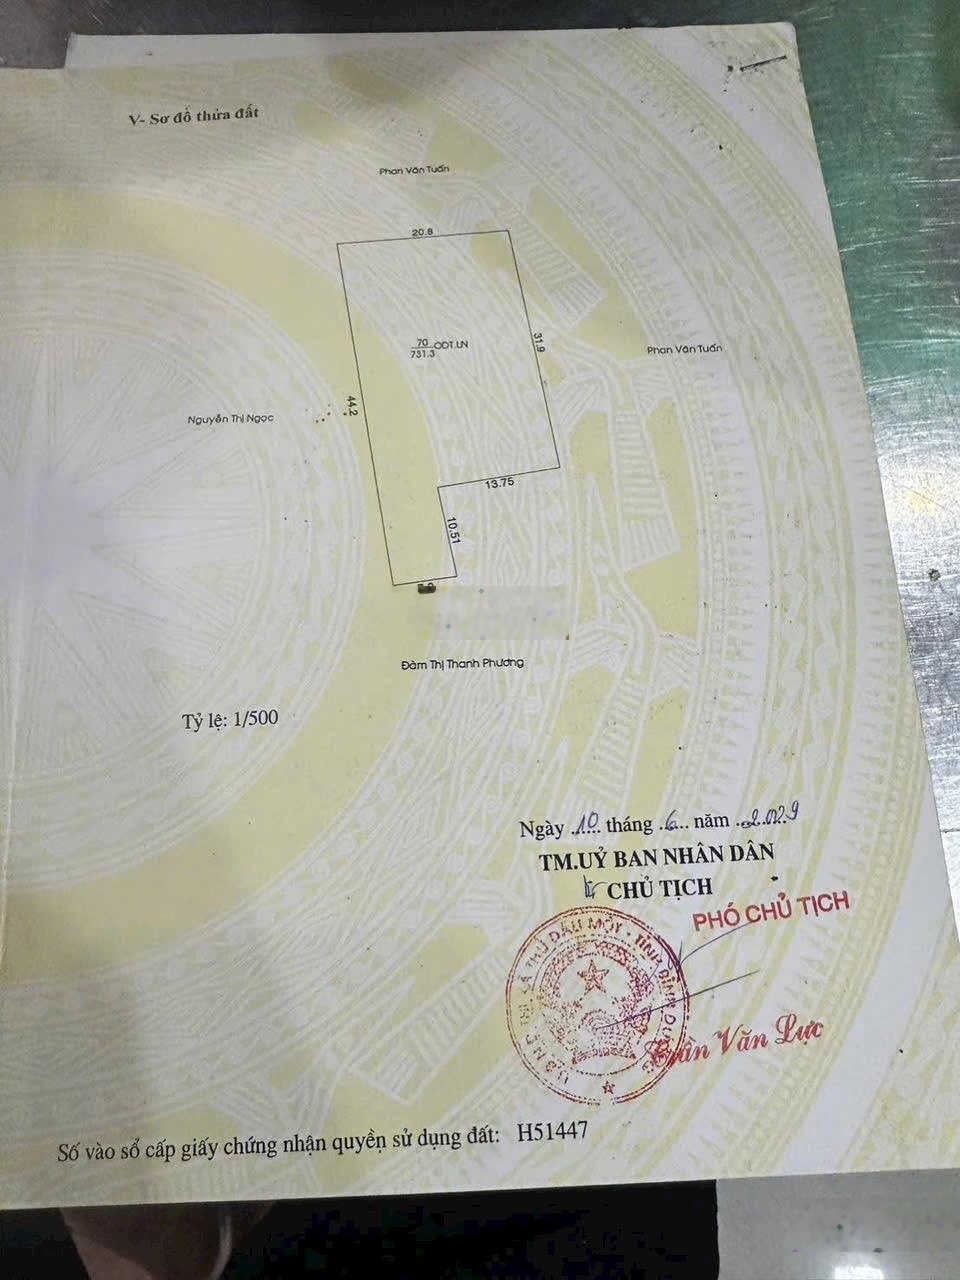 V- Sơ đồ thửa đất
Phan Văn Tuấn
20.8
70 ODT.LN
731.3
31.9
Phan Văn Tuấn
44.2
Nguyễn Thị Ngọc
13.75
10.51
Đàm Thị Thanh Phương
Tỷ lệ: 1/500
Ngày 10 tháng 6 năm
TM.UỶ BAN NHÂN DÂN
CHỦ TỊCH
PHÓ CHỦ TỊCH
U.B.N.D THỊ XÃ THỦ DẦU MỘT - TỈNH BÌNH DƯƠNG
Trần Văn Lực
Số vào sổ cấp giấy chứng nhận quyền sử dụng đất: H51447